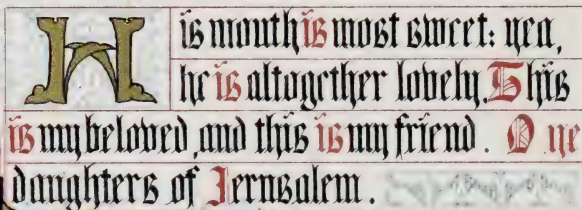 His mouth is most sweet: yea,
he is altogether lovely. This
is my beloved, and this is my friend. O ye
daughters of Jerusalem.